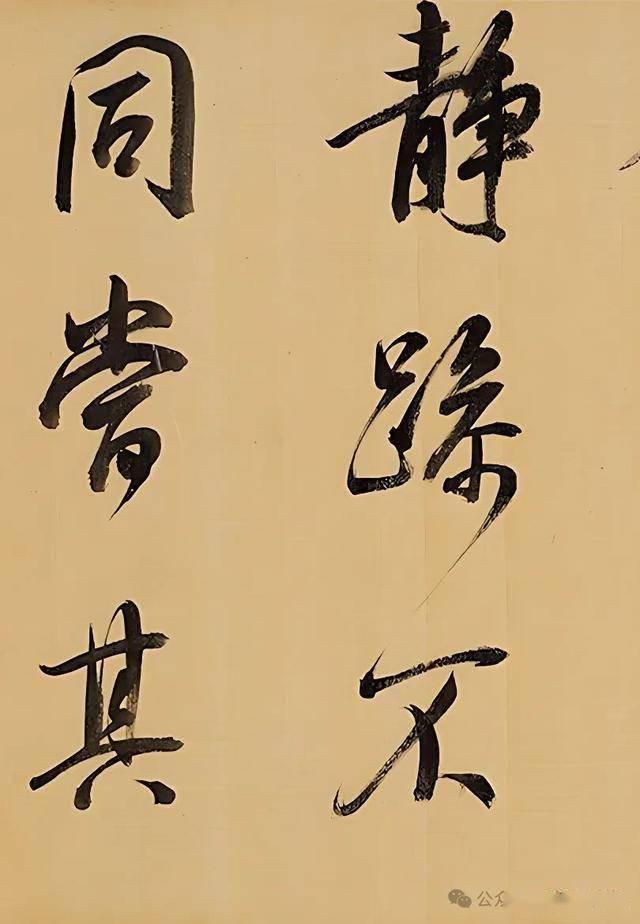 静躁不
同當其
公众